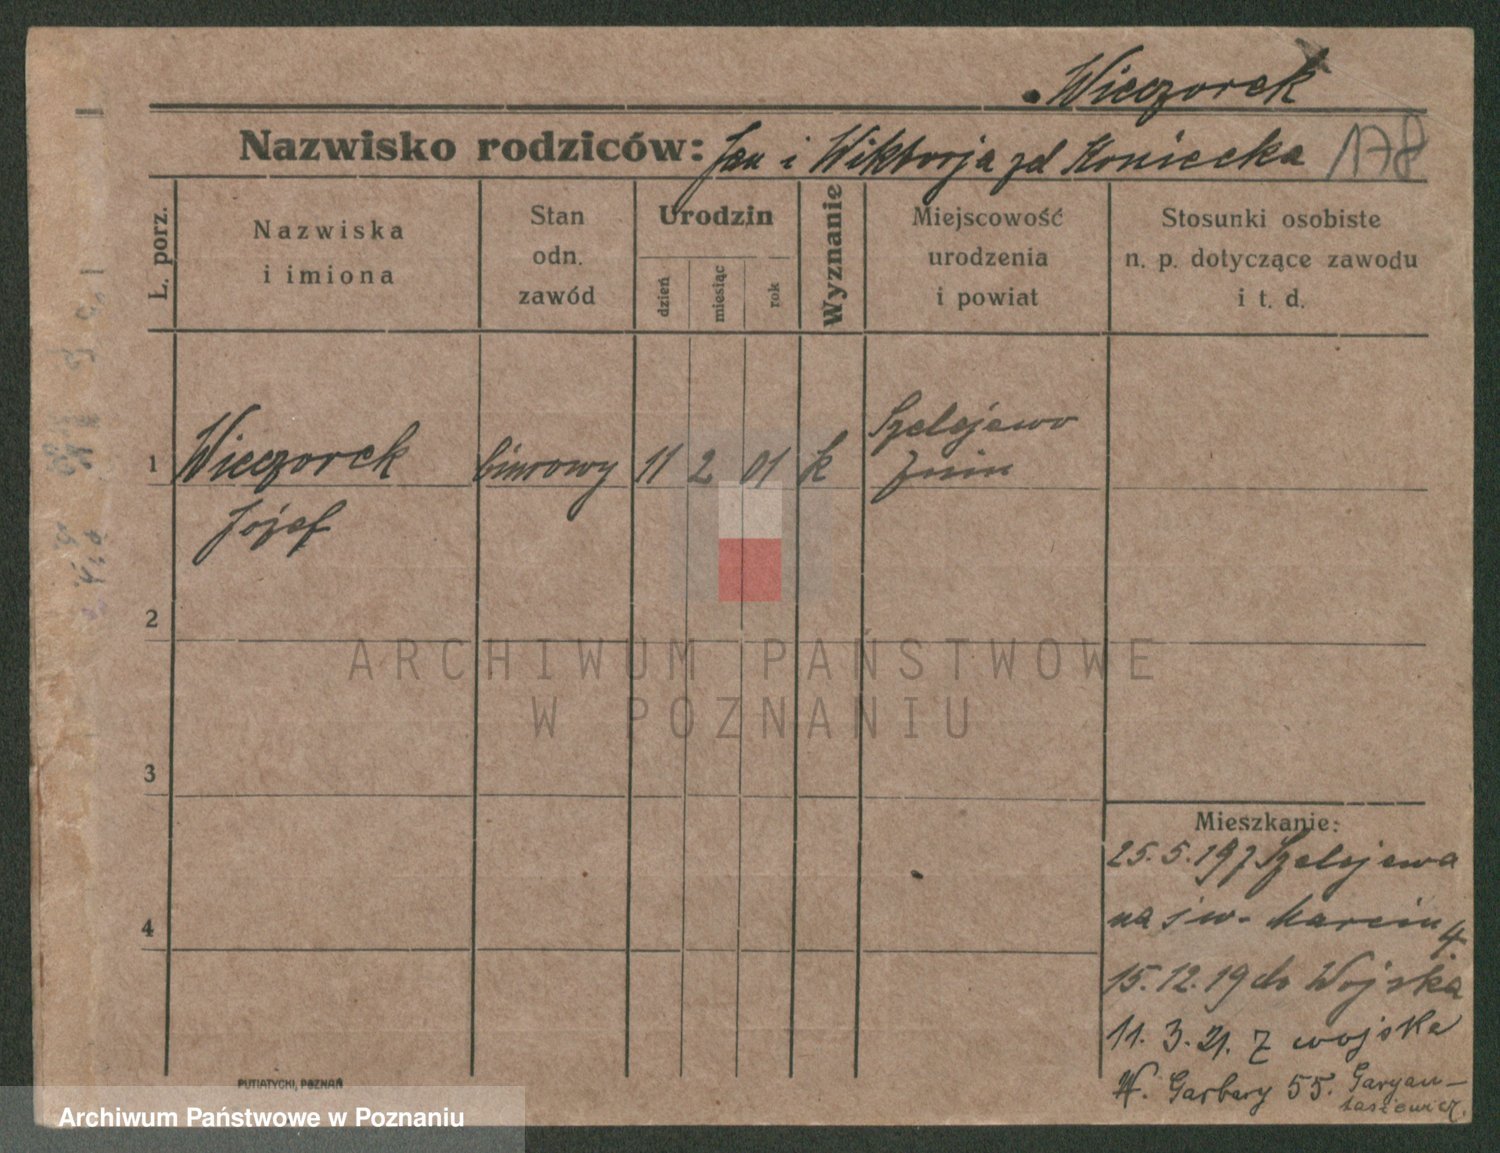 Wieczorek
Nazwisko rodziców: Jan i Wiktorja zd Koniecka 178
L. porz.
Nazwiska
i imiona
Stan
odn.
zawód
Urodzin
dzień
miesiąc
rok
Wyznanie
Miejscowość
urodzenia
i powiat
Stosunki osobiste
n. p. dotyczące zawodu
i t. d.
1 Wieczorek biurowy 11 2 01 k Szelejewo
Żnin
Józef
2
ARCHIWUM PAŃSTWOWE
W POZNANIU
3
4
Mieszkanie:
25.5.19 z Szelejewa
na św. Marcin 4
15.12.19 do Wojska
11.3.21. z wojska
W. Garbary 55.
PUTIATYCKI, POZNAŃ
Archiwum Państwowe w Poznaniu